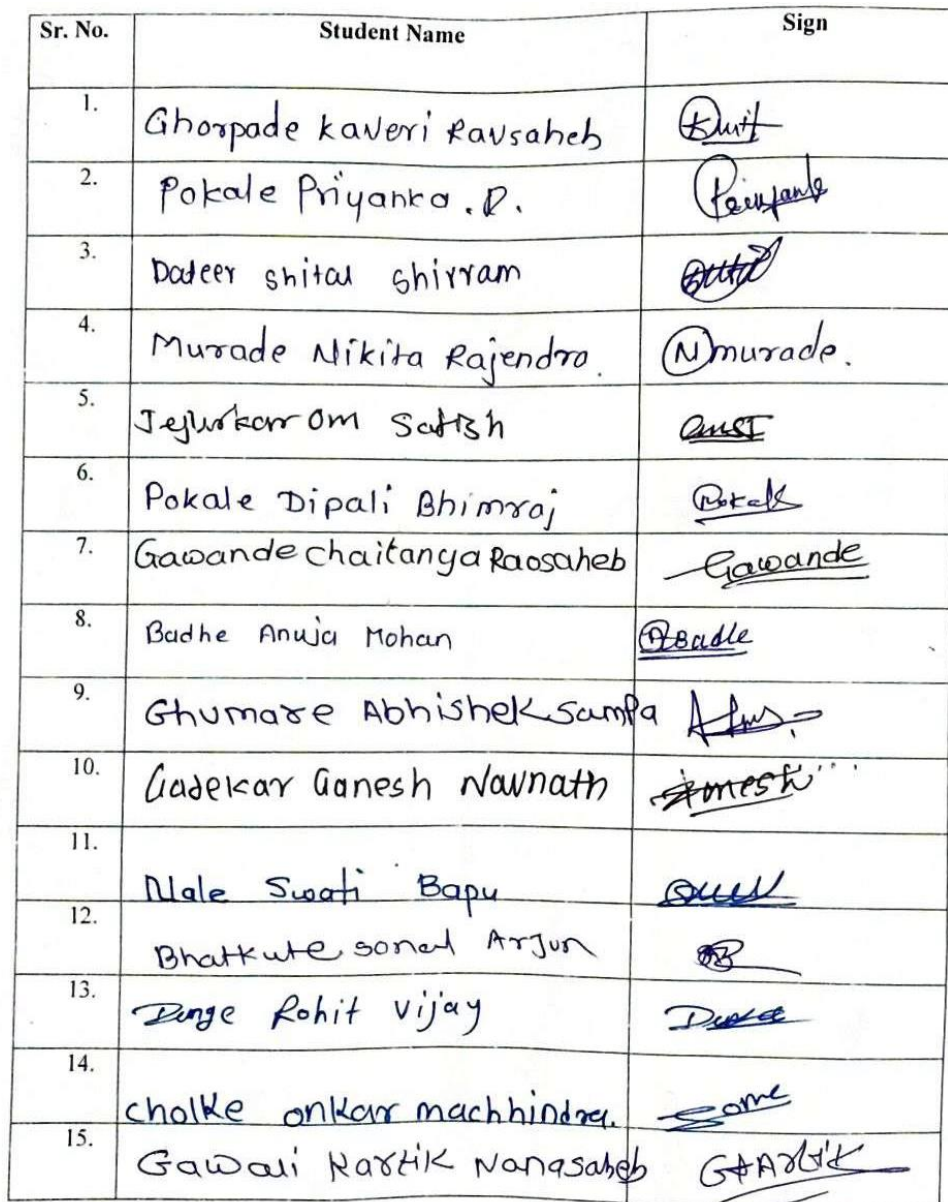 Sr. No. Student Name Sign
1. Ghorpade Kaveri Ravsaheb
2. Pokale Priyanka . D. Priyanka
3. Dateer shital shirram
4. Murade Nikita Rajendra. Nmurade.
5. Jejurkar Om Satish
6. Pokale Dipali Bhimraj Pokale
7. Gawande Chaitanya Raosaheb Gawande
8. Badhe Anuja Mohan ABadle
9. Ghumare Abhishek Sampa
10. Gadekar Ganesh Navnath
11. Nale Swati Bapu
12. Bhatkute sonal Arjun
13. Dunge Rohit Vijay
14. cholke onkar machhindra.
15. Gawali Kartik Nanasaheb